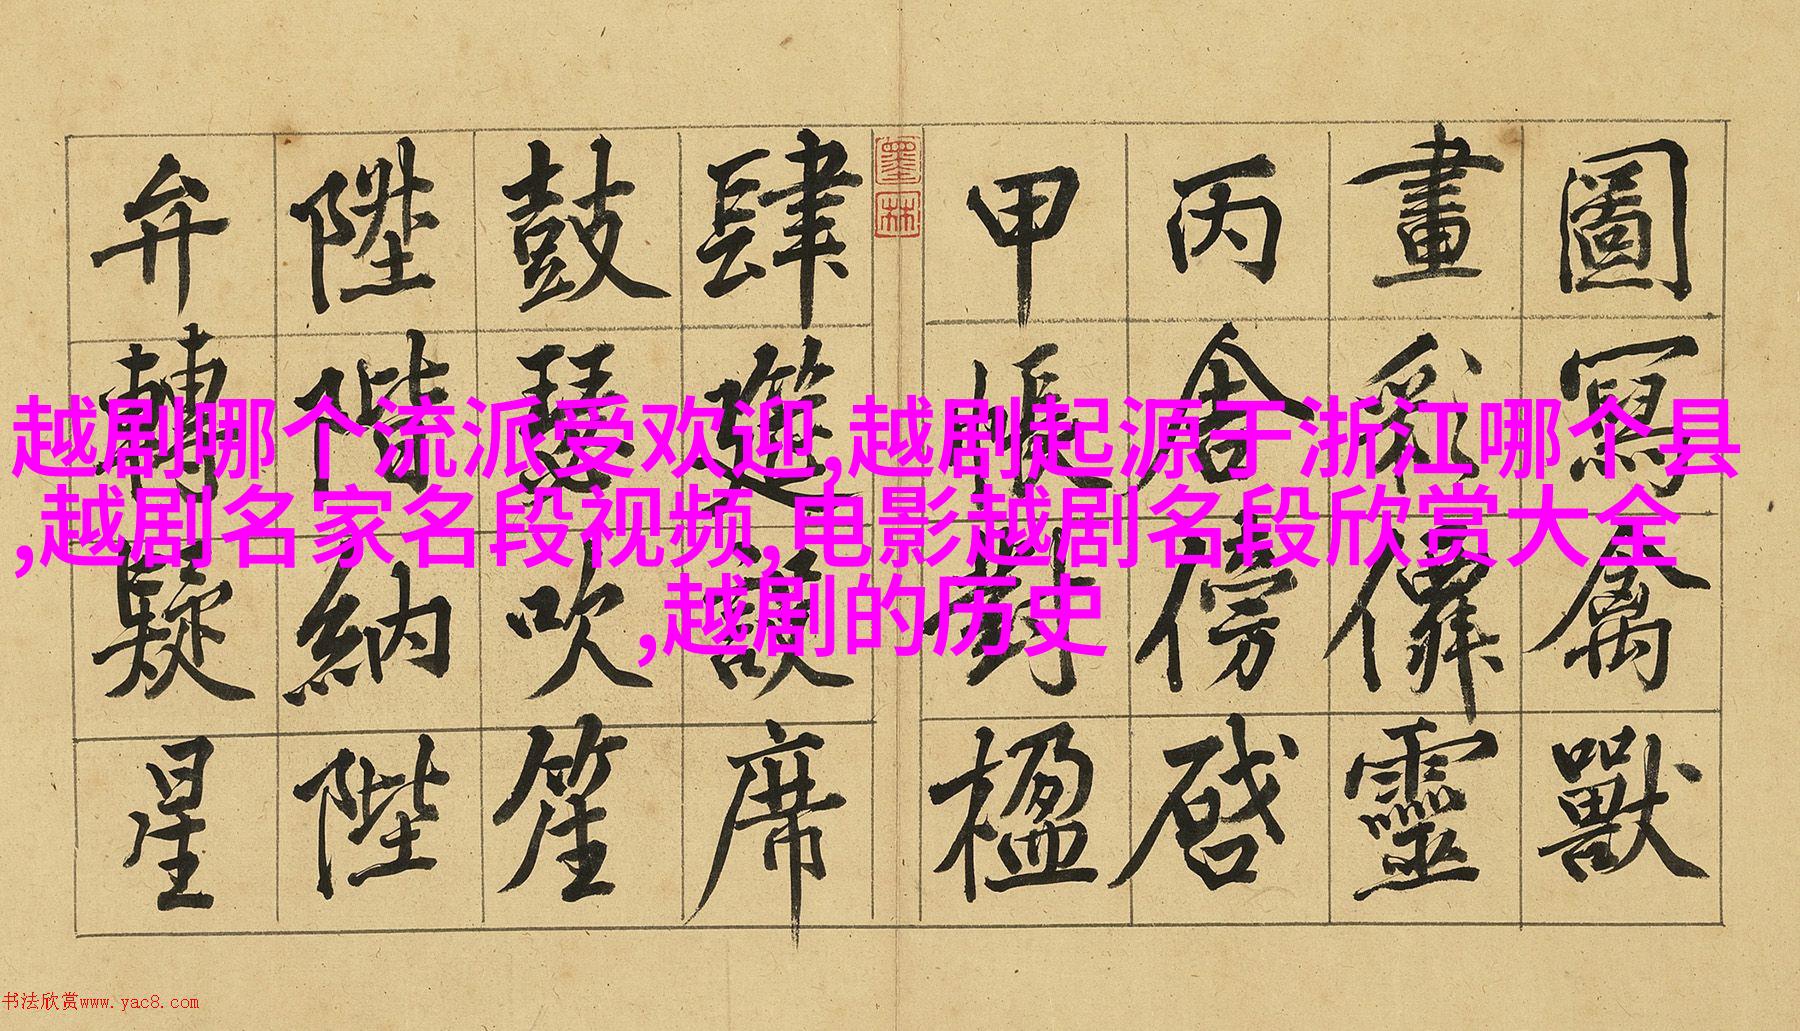 越剧哪个流派受欢迎,越剧起源于浙江哪个县
,越剧名家名段视频,电影越剧名段欣赏大全
,越剧的历史
圖寫禽獸
畫彩僊靈
丙舍傍啓
甲帳對楹
墨林
肆筵設席
鼓瑟吹笙
陞階納陛
弁轉疑星
书法欣赏www.yac8.com